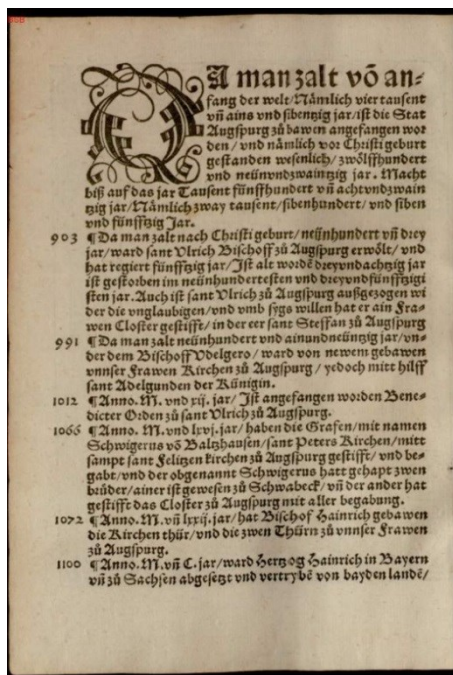 DA man zalt võ an-
fang der welt/Nämlich vier tausent
vñ ains vnd sibentzig jar/ist die Stat
Augspurg zů bawen angefangen wor
den/vnd nämlich vor Christi geburt
gestanden wesenlich/zwölffhundert
vnd neünvndzwaintzig jar. Macht
biß auf das jar Tausent fünffhundert vñ achtvndzwain
tzig jar/Nämlich zway tausent/sibenhundert/vnd siben
vnd fünfftzig Jar.
903 ¶Da man zalt nach Christi geburt/neünhundert vñ drey
jar/ward sant Vlrich Bischoff zů Augspurg erwölt/vnd
hat regiert fünfftzig jar/Ist alt wordẽ dreyvndachtzig jar
ist gestorben im neünhundertesten vnd dreyvndfünfftzigi
sten jar. Auch ist sant Vlrich zů Augspurg außgezogen wi
der die vnglaubigen/vnd vmb sygs willen hat er ain Fra-
wen Closter gestifft/in der eer sant Steffan zů Augspurg
991 ¶Da man zalt neünhundert vnd ainundneüntzig jar/vn-
der dem Bischoff Vdelgero/ward von newem gebawen
vnnser Frawen Kirchen zů Augspurg/yedoch mitt hilff
sant Adelgunden der Künigin.
1012 ¶Anno. M. vnd xij. jar/Ist angefangen worden Bene-
dicter Orden zů sant Vlrich zů Augspurg.
1066 ¶Anno. M. vnd lxvj. jar/haben die Grafen/mit namen
Schwigerus võ Baltzhausen/sant Peters Kirchen/mitt
sampt sant Felitzen kirchen zů Augspurg gestifft/vnd be-
gabt/vnd der obgenannt Schwigerus hatt gehapt zwen
brüder/ainer ist gewesen zů Schwabeck/vñ der ander hat
gestifft das Closter zů Augspurg mit aller begabung.
1072 ¶Anno. M. vñ lxxij. jar/hat Bischof Hainrich gebawen
die Kirchen thür/vnd die zwen Thürn zů vnnser Frawen
zů Augspurg.
1100 ¶Anno. M. vñ C. jar/ward Hertzog Hainrich in Bayern
vñ zů Sachsen abgesetzt vnd vertrybẽ von bayden landẽ/